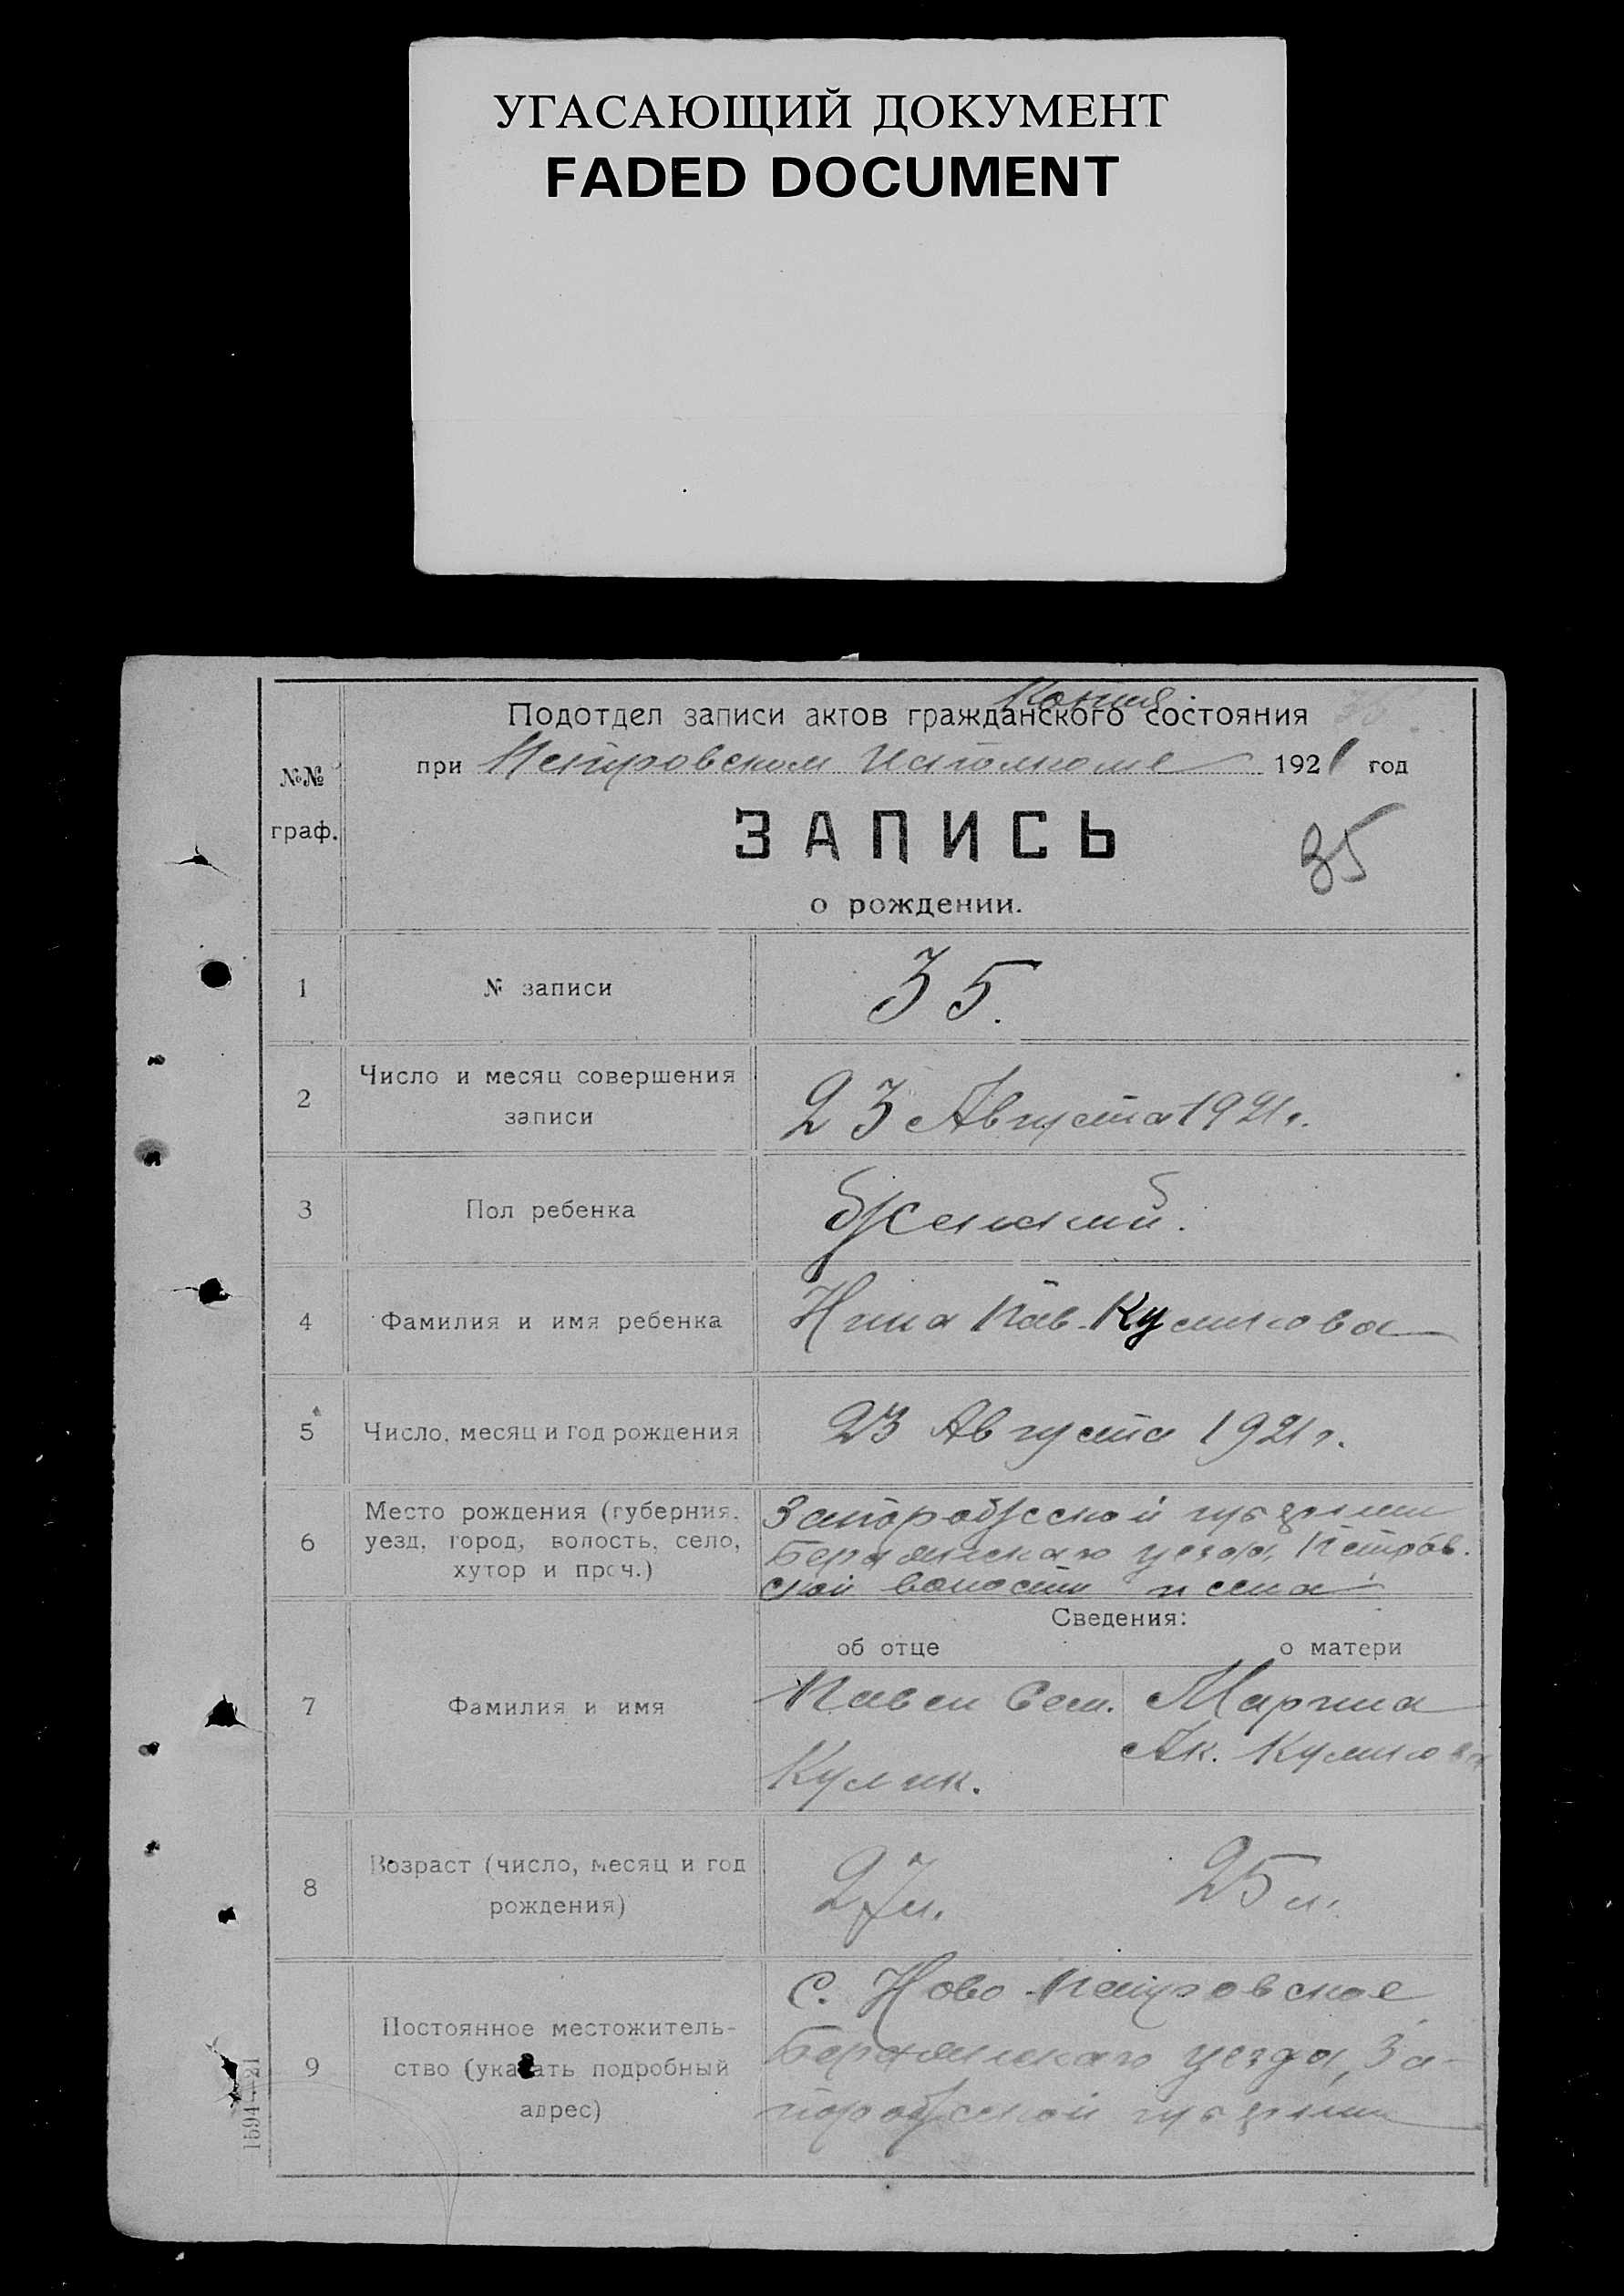 УГАСАЮЩИЙ ДОКУМЕНТ
FADED DOCUMENT
Копия
Подотдел записи актов гражданского состояния
при Петровском Исполкоме 1921 год
№№
граф.
ЗАПИСЬ
35
о рождении.
1 № записи 35.
2 Число и месяц совершения
записи
23 Августа 1921 г.
3 Пол ребенка Женский.
4 Фамилия и имя ребенка Нина Пав. Куликова
5 Число, месяц и год рождения 23 Августа 1921 г.
6 Место рождения (губерния,
уезд, город, волость, село,
хутор и проч.)
Запорожской губернии
Бердянскаго уезда, Петров.
ской волости и села
Сведения:
об отце
о матери
7 Фамилия и имя
Павел Сем.
Кулик.
Марина
Ак. Куликова
8 Возраст (число, месяц и год
рождения)
27 л.
25 л.
9 Постоянное местожитель-
ство (указать подробный
адрес)
С. Ново-Петровское
Бердянскаго уезда, За-
порожской губернии
1594—21